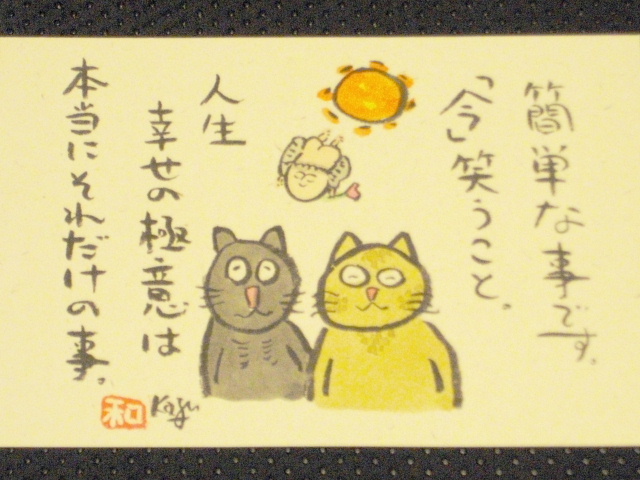 簡単な事です。
「今」笑うこと。
人生
幸せの極意は
本当にそれだけの事。
和
Kazu